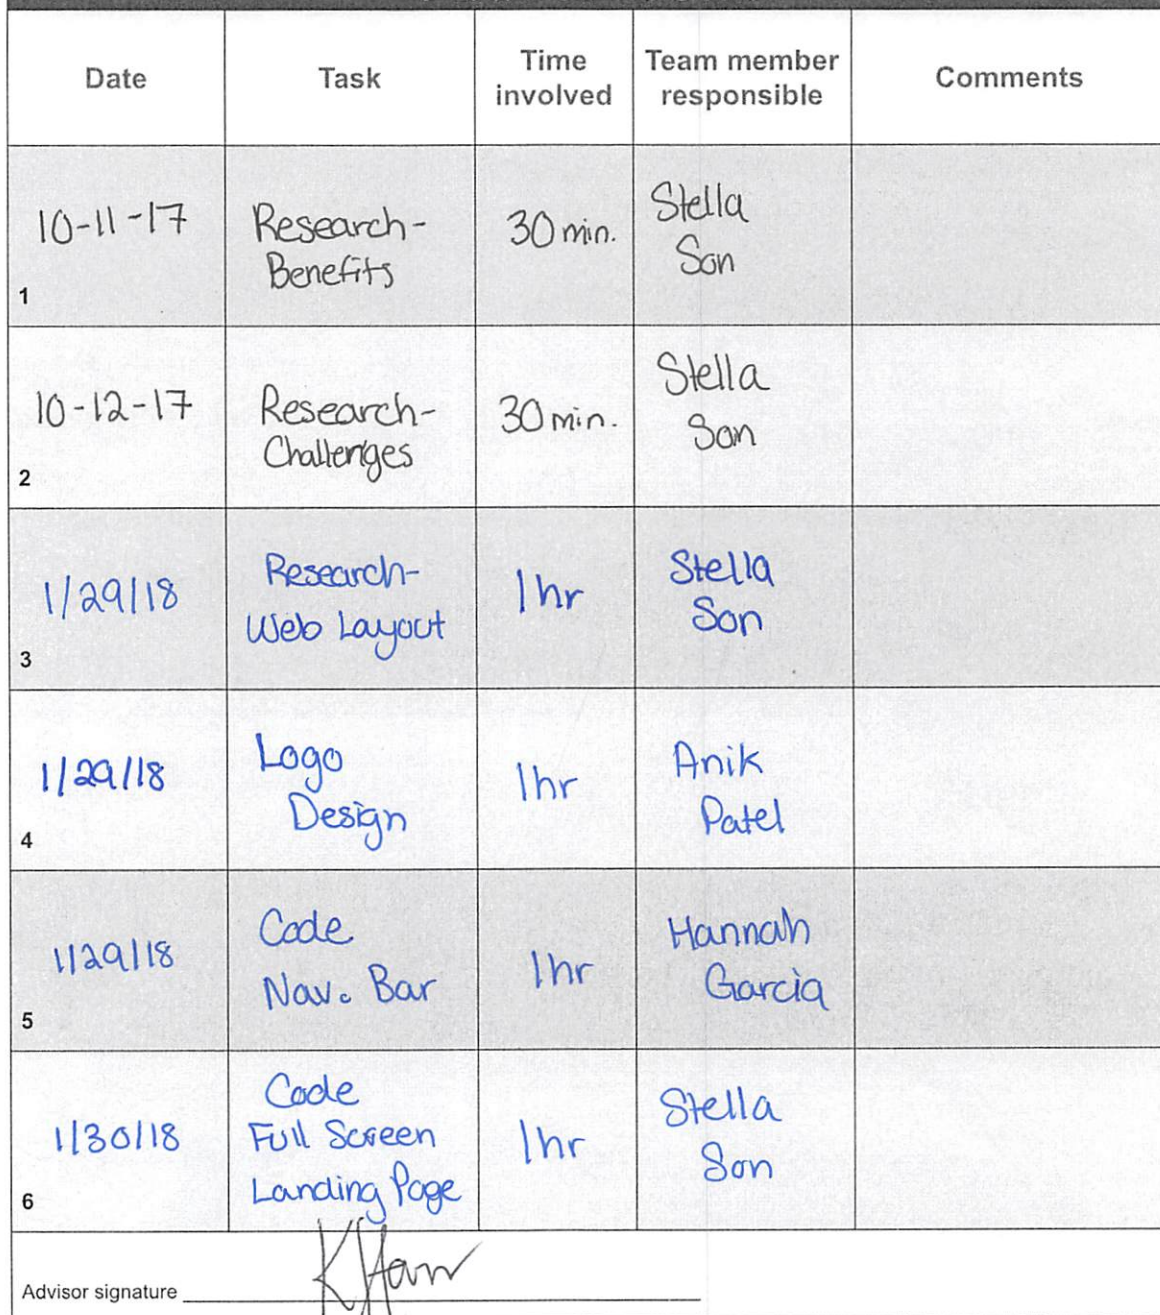 Date
Task
Time
involved
Team member
responsible
Comments
10-11-17
Research-
Benefits
30 min.
Stella
Son
1
10-12-17
Research-
Challenges
30 min.
Stella
Son
2
1/29/18
Research-
Web Layout
1 hr
Stella
Son
3
1/29/18
Logo
Design
1hr
Anik
Patel
4
1/29/18
Code
Nav. Bar
1hr
Hannah
Garcia
5
1/30/18
Code
Full Screen
Landing Page
1hr
Stella
Son
6
Advisor signature